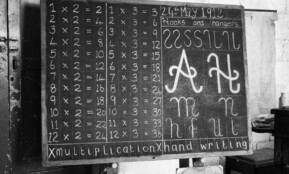 1 x 2 = 2
2 x 2 = 4
3 x 2 = 6
4 x 2 = 8
5 x 2 = 10
6 x 2 = 12
7 x 2 = 14
8 x 2 = 16
9 x 2 = 18
10 x 2 = 20
11 x 2 = 22
12 x 2 = 24
1 x 3 = 3
2 x 3 = 6
3 x 3 = 9
4 x 3 = 12
5 x 3 = 15
6 x 3 = 18
7 x 3 = 21
8 x 3 = 24
9 x 3 = 27
10 x 3 = 30
11 x 3 = 33
12 x 3 = 36
Hooks and hangers
A H
m n
h r u l
X multiplication X hand writing